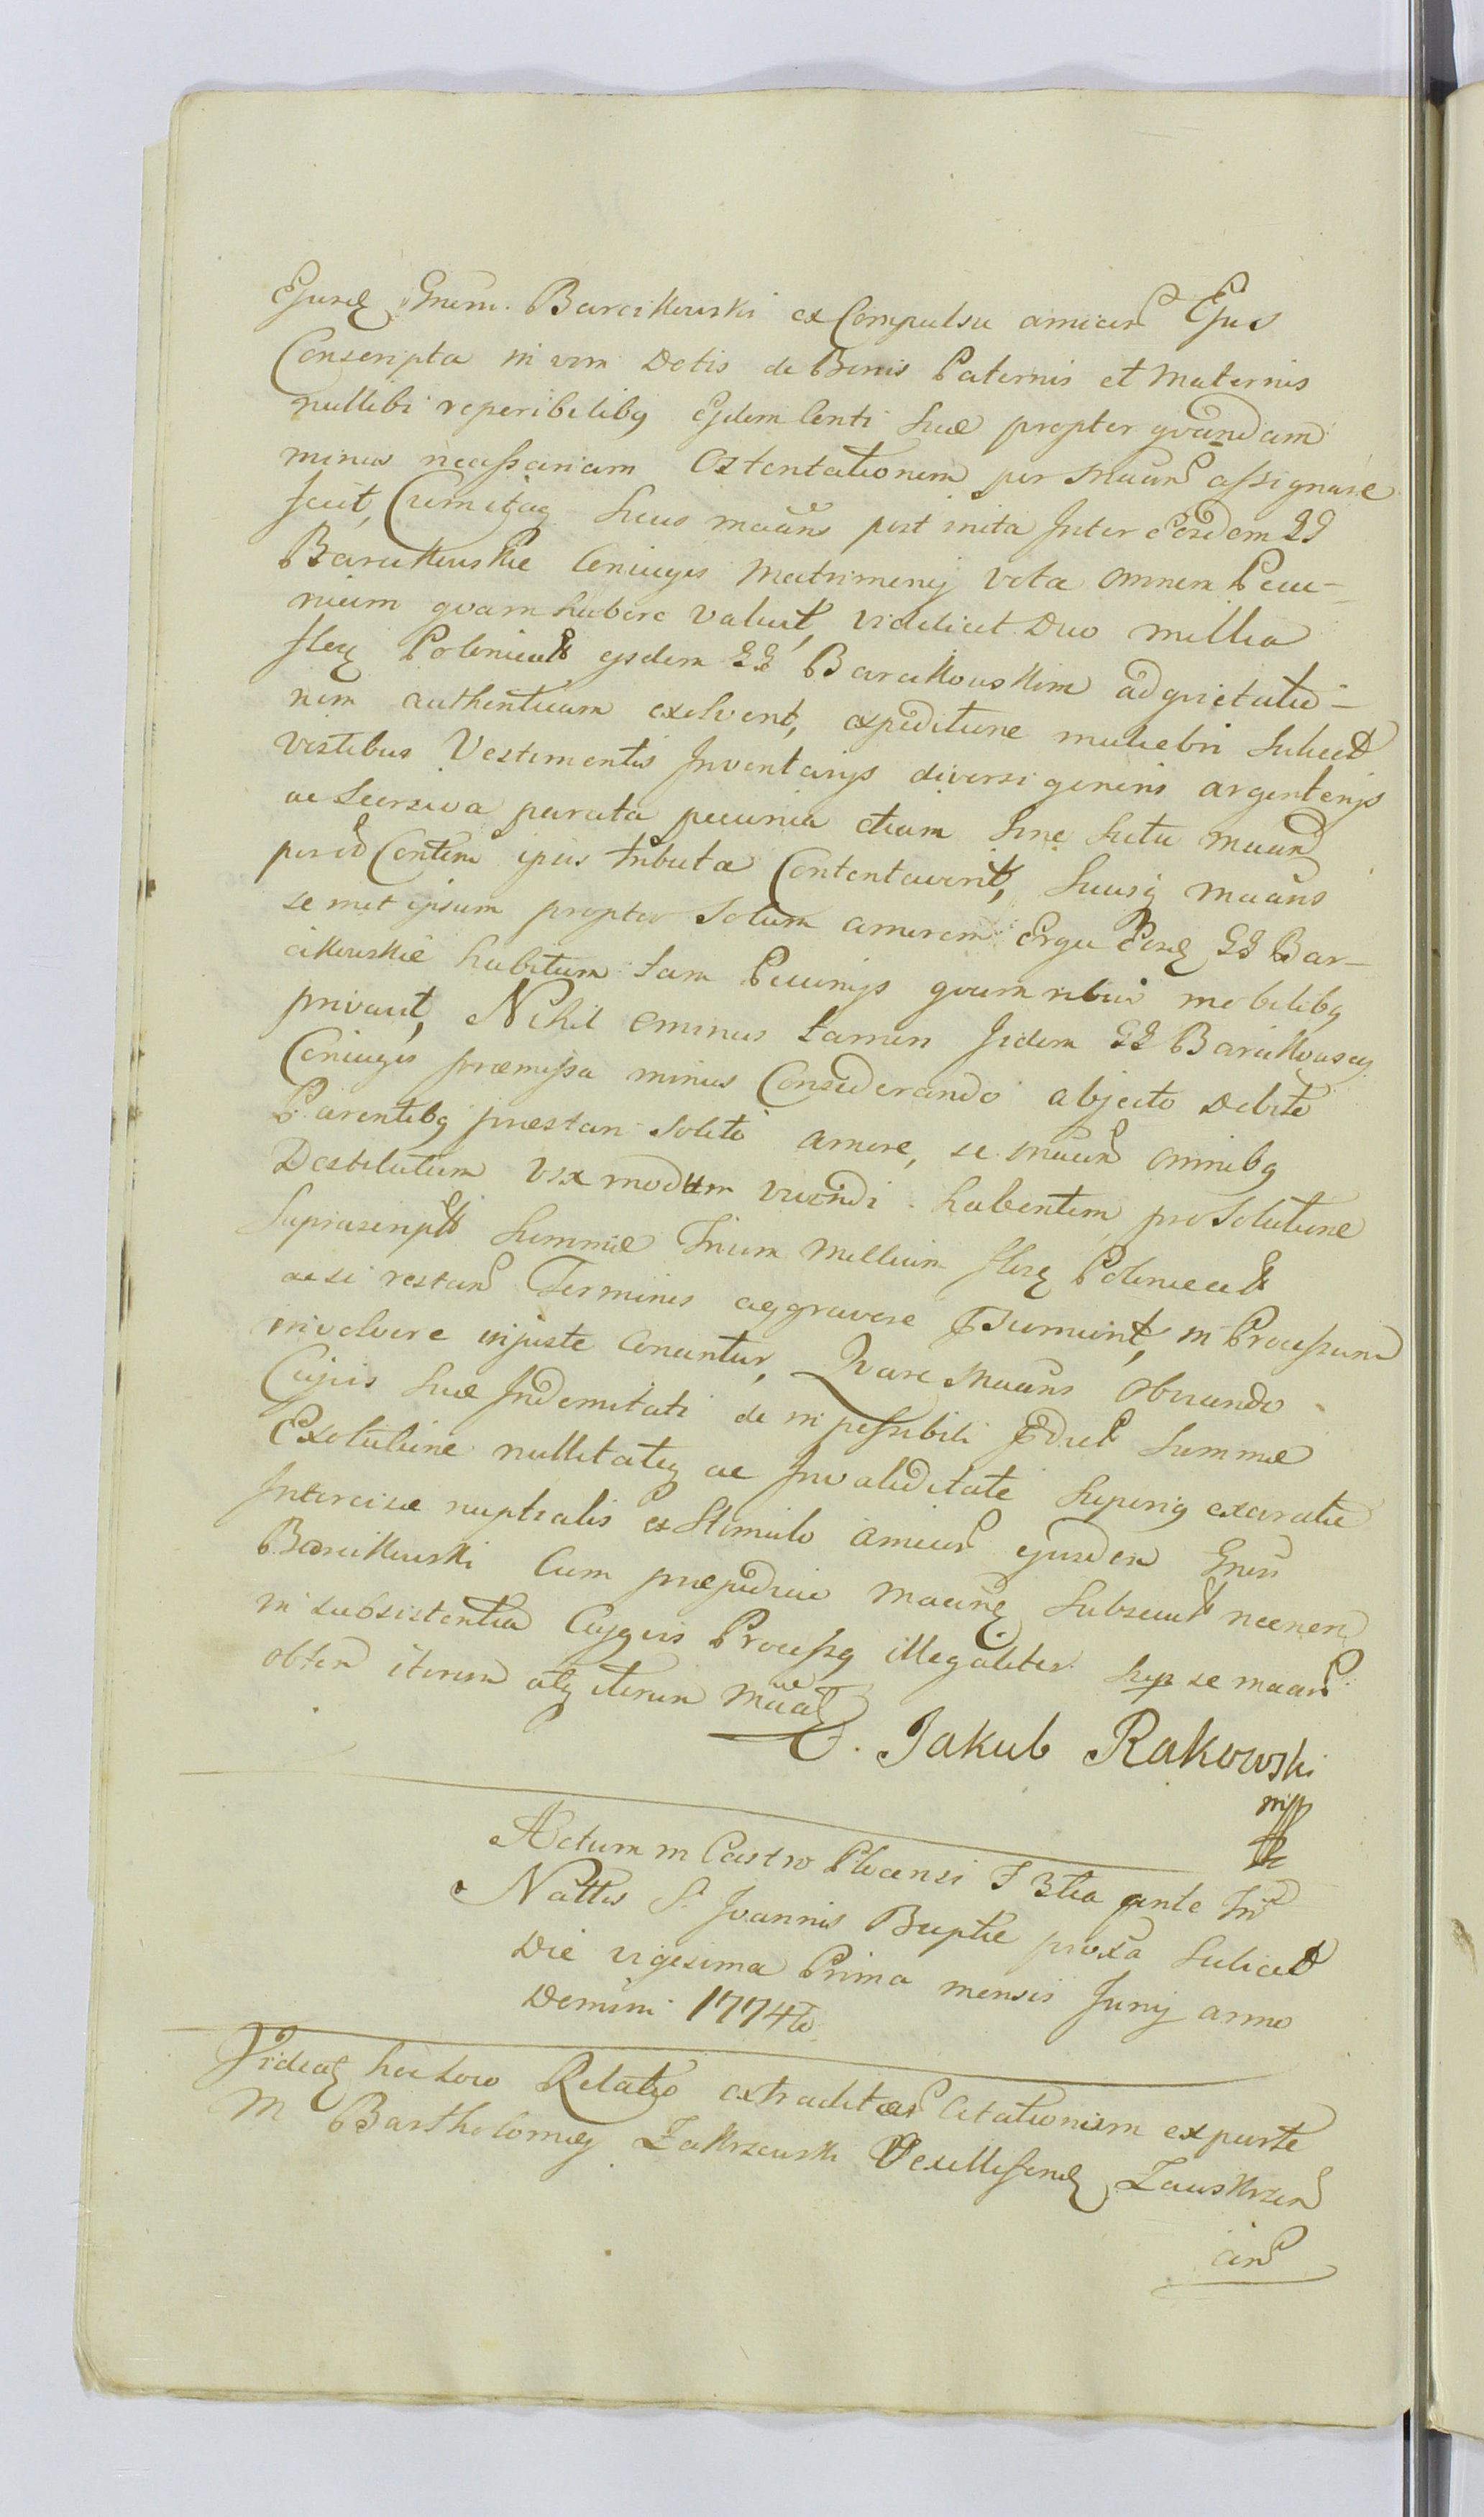 Ejusd Gnem. Barcikowski ex Compulsu amicor Ejus
Conscripta in vim Dotis de Bonis Paternis et Maternis
nullibi reperibilibq Ejdem Conti suæ propter qvandam
minus necessariam Ostentationem per Maan assignare
fecit, Cumitaq suus maans post inita Inter Eosdem GG
Barcikowskie Coniuges Matrimonij vota omnem Pecu-
niam qvam habere valuit, videlicet Duo millia
flor Polonical ejsdem GG Barcikowskim ad qvietatio-
nem authenticam exolvent, expeditione muliebri scilicet
vestibus Vestimentis Inventarijs diversi generis argenterijs
ac seorsiva parata pecunia etiam sine scitu maan
per id Contem ipsis tributa Contentaverit, suusq maans
semet ipsum propter solum amorem Erga Eosd GG Bar-
cikowskie habitum tam Pecunijs qvam rebus mobilibq
privavit, Nihil ominus tamen Iidem GG Barcikowscy
Coniuges præmissa minus Considerando abjecto Debito
Parentibq præstari solito amore, se maan omnibq
Destitutum vix modum vivendi habentem pro solutione
suprascript summæ Trium Millium flor Polonical
ac si restan Terminis aggravare præsumunt, in Processum
involvere injuste Conantur, Qvare Maans obviando
Cujvis suæ Indemnitati de impossibili præd summæ
Exolutione nullitateq ac Invaliditate superiq exaratæ
Intercisæ nuptialis ex Stimulo amicor ejusdem Gnesi
Barcikowski Cum præjudicio maanq subsecut necnon
in subsistentia Cujqvis Processq illegaliter sup se maan
obten iterum atq iterum Maat
Jakub Rakowski
mpp
Actum in Castro Plocensi F 3tia ante Fm
Nattis S. Joannis Baptæ proxa scilicet
Die vigesima Prima mensis Junij anno
Domini 1774to
Videat hoc loco Relatio extraditar Citationum ex parte
M Bartholomej Zakrzewski Vexilliferid Zawskrzen
cin